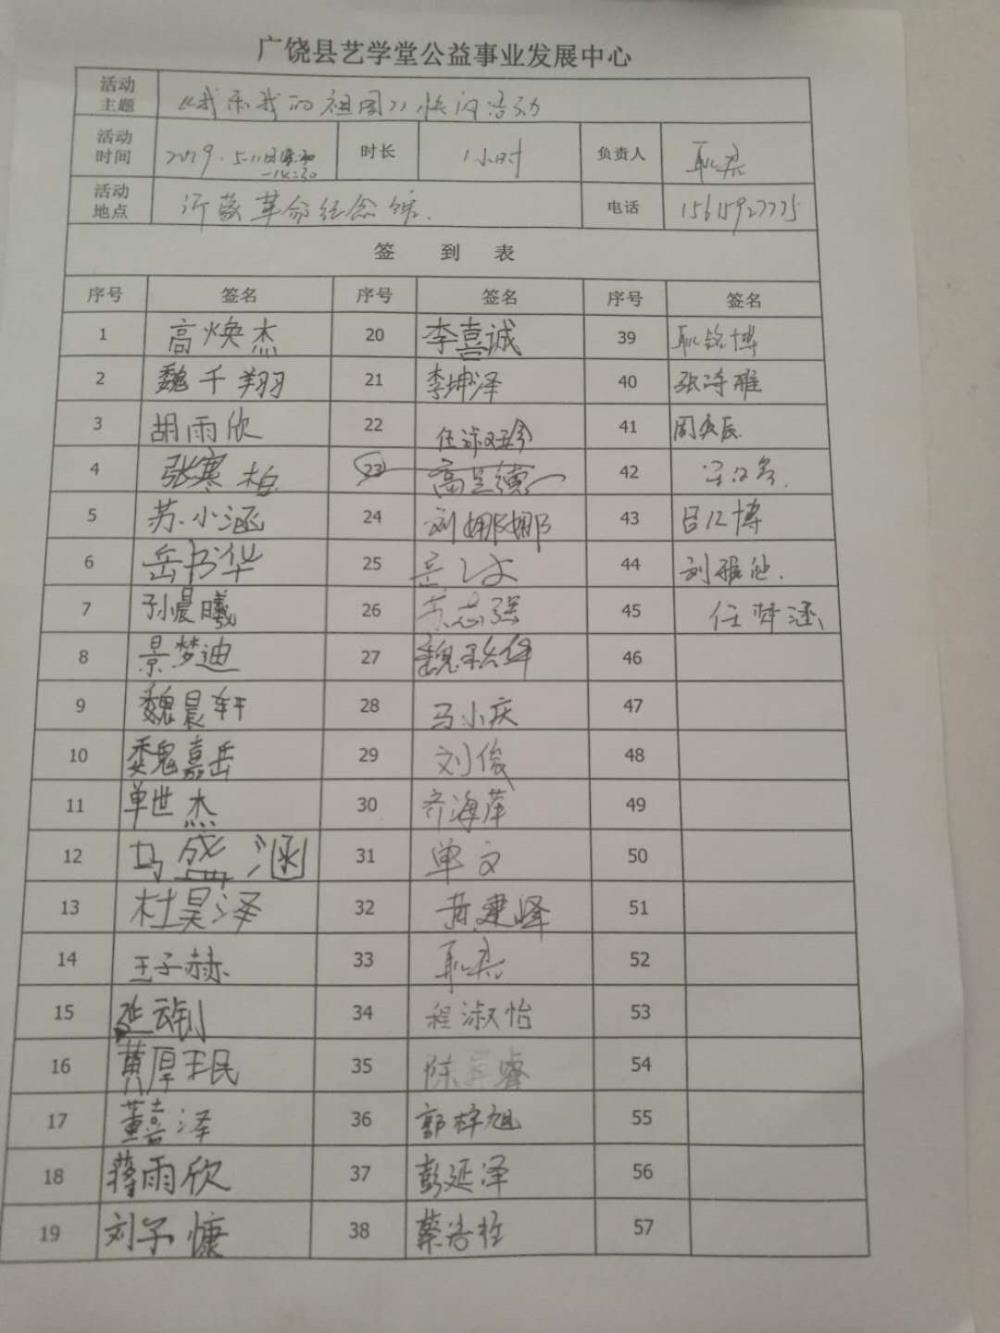 广饶县艺学堂公益事业发展中心
活动主题 《我和我的祖国》快闪活动
活动时间 2019.5.11 时长 1小时 负责人 耿
活动地点 沂蒙革命纪念馆. 电话 15615927775
签到表
序号 签名 序号 签名 序号 签名
1 高焕杰 20 李喜诚 39 耿铭博
2 魏千翔 21 李坤泽 40 张诗雅
3 胡雨欣 22 任淑珍 41 周奕辰
4 张寒柏 23 高 42
5 苏小涵 24 刘娜娜 43 吕仁博
6 岳书华 25 岳 44 刘雅
7 孙晨曦 26 苏志强 45 任梦涵
8 景梦迪 27 魏 46
9 魏晨轩 28 马小庆 47
10 魏嘉岳 29 刘俊 48
11 单世杰 30 齐海萍 49
12 马盛涵 31 单文 50
13 杜昊泽 32 黄建峰 51
14 王子赫 33 耿 52
15 延云钊 34 程淑怡 53
16 黄厚民 35 陈 睿 54
17 董喜泽 36 郭梓旭 55
18 蒋雨欣 37 彭延泽 56
19 刘子慷 38 蔡浩栓 57